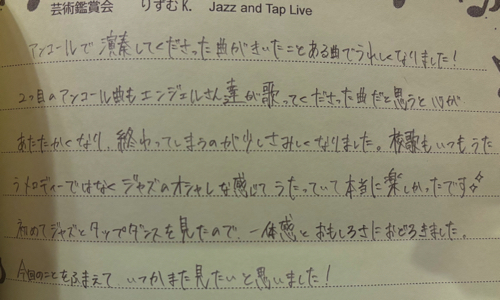 芸術鑑賞会　りずむK.　Jazz and Tap Live
アンコールで演奏してくださった曲がきいたことある曲でうれしくなりました！
2つ目のアンコール曲もエンジェルさん達が歌ってくださった曲だと思うと心が
あたたかくなり、終わってしまうのが少しさみしくなりました。校歌もいつもうた
うメロディーではなくジャズのオシャレな感じでうたっていて本当に楽しかったです
初めてジャズとタップダンスを見たので、一体感とおもしろさにおどろきました。
今回のことをふまえて いつかまた見たいと思いました！